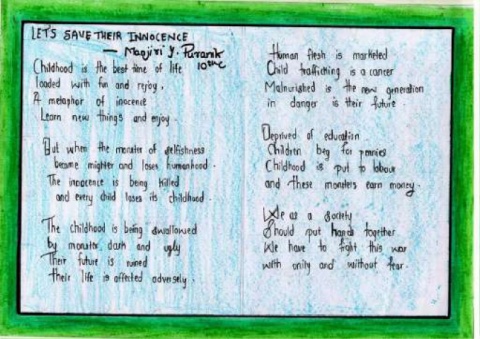 LET'S SAVE THEIR INNOCENCE
— Manjiri Y. Puranik
10th C
Childhood is the best time of life
loaded with fun and rejoy.
A metaphor of inocence
Learn new things and enjoy.
But when the monster of selfishness
became mightier and loses humanhood.
The innocence is being killed
and every child loses its childhood.
The childhood is being swallowed
by monster, dark and ugly
Their future is ruined
their life is affected adversely.
Human flesh is marketed
Child trafficking is a cancer
Malnurished is the new generation
in danger is their future.
Deprived of education
Children beg for pennies
Childhood is put to labour
and these monsters earn money.
We as a society
Should put hands together
We have to fight this war
with unity and without fear.